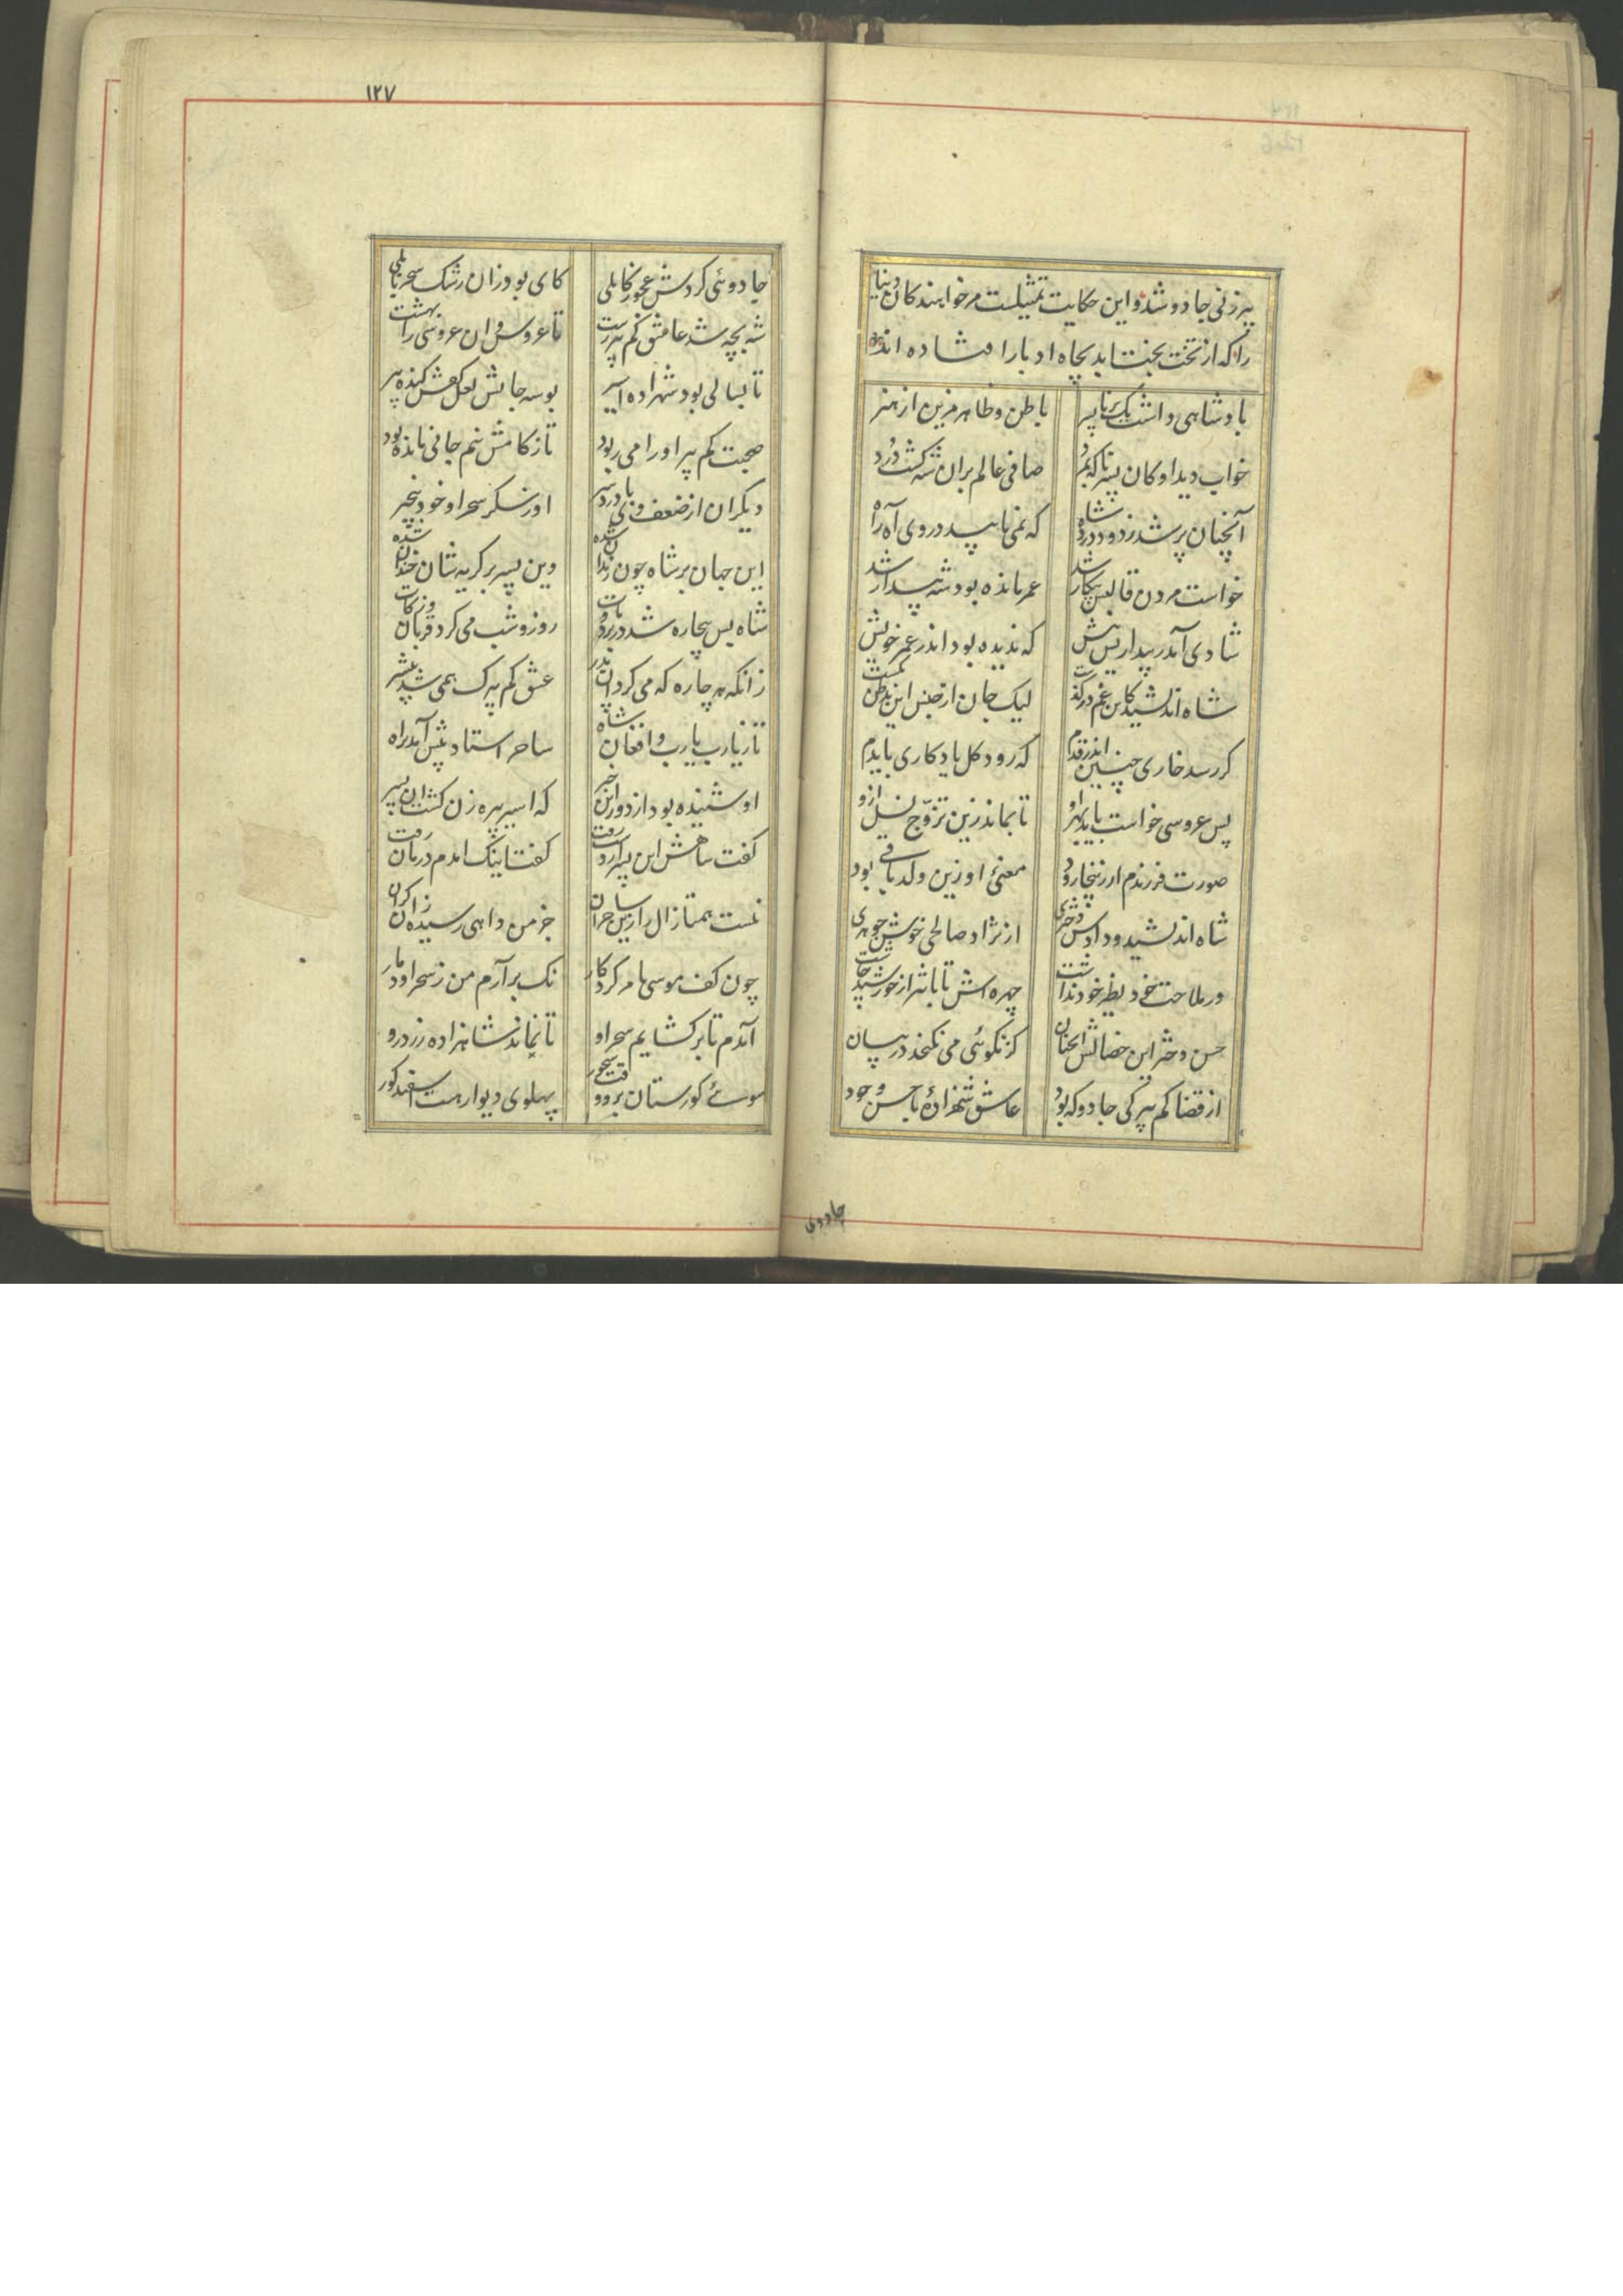 پیرزنی جادو شد و این حکایت تمثیلست مر خواهندکان دنیا
را که از تخت بخت ابد بچاه ادبار افتاده اند
پادشاهی داشت یک برنا پسر باطن و ظاهر مزین از هنر
خواب دید او کان پسر ناکه بمرد صافی عالم بران شه کشت درد
آنچنان پر شد ز دود و درد شاه که نمی یابید در وی آه راه
خواست مردن قالبش بیکار شد عمر مانده بود شه بیدار شد
شادی آمد ز بیداریش پیش که ندیده بود اندر عمر خویش
شاه اندیشید کاین غم در کذشت لیک جان از جنس این بدظن کشت
کر رسد خاری چنین اندر قدم که رود کل یادکاری بایدم
پس عروسی خواست باید بهر او تا بماند زین تزوّج نسل ازو
صورت فرزندم ار زینجا رود معنئ او زین ولد باقی بود
شاه اندیشید و دادش دختری از نژاد صالحی خوش جوهری
در ملاحت خود نظیر خود نداشت چهره اش تابانتر از خورشید چاشت
حسن دختر این خصالش آنچنان کز نکوئی می نکنجد در بیان
از قضا کم پیرکی جادو که بود عاشق شهزادۀ با حسن وجود
جادوی
۱۲۷
جادوئی کردش عجوز کابلی کای بود زان رشک سحر بابلی
شه بچه شد عاشق کم پیر زشت تا عروس و ان عروسی را بهشت
تا بسالی بود شهزاده اسیر بوسه جایش نعل کفش کنده پیر
صحبت کم پیر او را می ربود تا ز کاهش نیم جانی مانده بود
دیکران از ضعف وی با درد سر او ز سکر سحر او خود بیخبر
این جهان بر شاه چون زندان شده وین پسر بر کریه شان خندان شده
شاه بس بیچاره شد در برد و مات روز و شب می کرد قربان و زکات
زانکه هر چاره که می کرد ان پدر عشق کم پیرک همی شد بیشتر
تا ز یارب یارب و افغان شاه ساحر استاد پیش آمد ز راه
او شنیده بود از دور این خبر که اسیر پیره زن کشت ان پسر
کفت شاهش این پسر از دست رفت کفت اینک امدم درمان رفت
نیست همتا زال را زین ساحران جز من داهی رسیده زان کران
چون کف موسی بامر کردکار نک بر آرم من ز سحر او دمار
آمدم تا بر کشایم سحر او تا نماند شاهزاده زرد رو
سوئ کورستان برو وقت سحور پهلوی دیوار هست اسفید کور